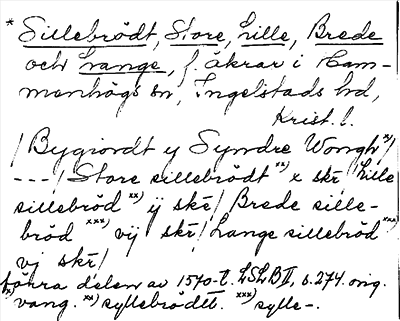 * Sillebrödt, Store, Lille, Brede
och Lange, f. åkrar i Ham-
menhögs sn, Ingelstads hd,
Krist. l.
/Bygiordt y Syndre Wongh x)/
---/Store sillebrödt xx) x skr/ Lille
sillebröd xx) ÿ skr/ Brede sille-
bröd xxx) vij skr/ Lange sillebröd xxx)
vj skr/
förra delen av 1570-t. LSLB II, s. 274. orig.
x) vang. xx) syllebrödtt. xxx) sylle-.